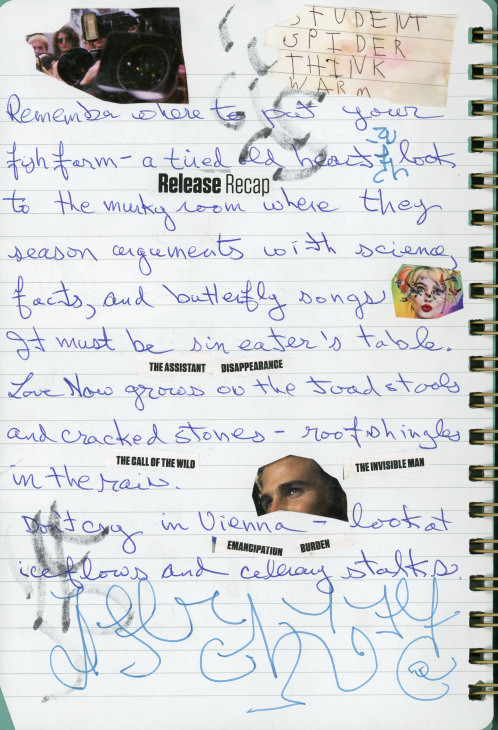 STUDENT
SPIDER
THINK
WARM
Rememba where to put your
fish farm - a tired old heart look
Release Recap
to the murky room where they
season arguments with science,
facts, and butterfly songs
It must be sin eater's table.
THE ASSISTANT DISAPPEARANCE
Love Now grows on the toadstools
and cracked stones - roof shingles
THE CALL OF THE WILD THE INVISIBLE MAN
in the rain.
Don't cry in Vienna - look at
EMANCIPATION BURDEN
ice flows and cellery stalks.